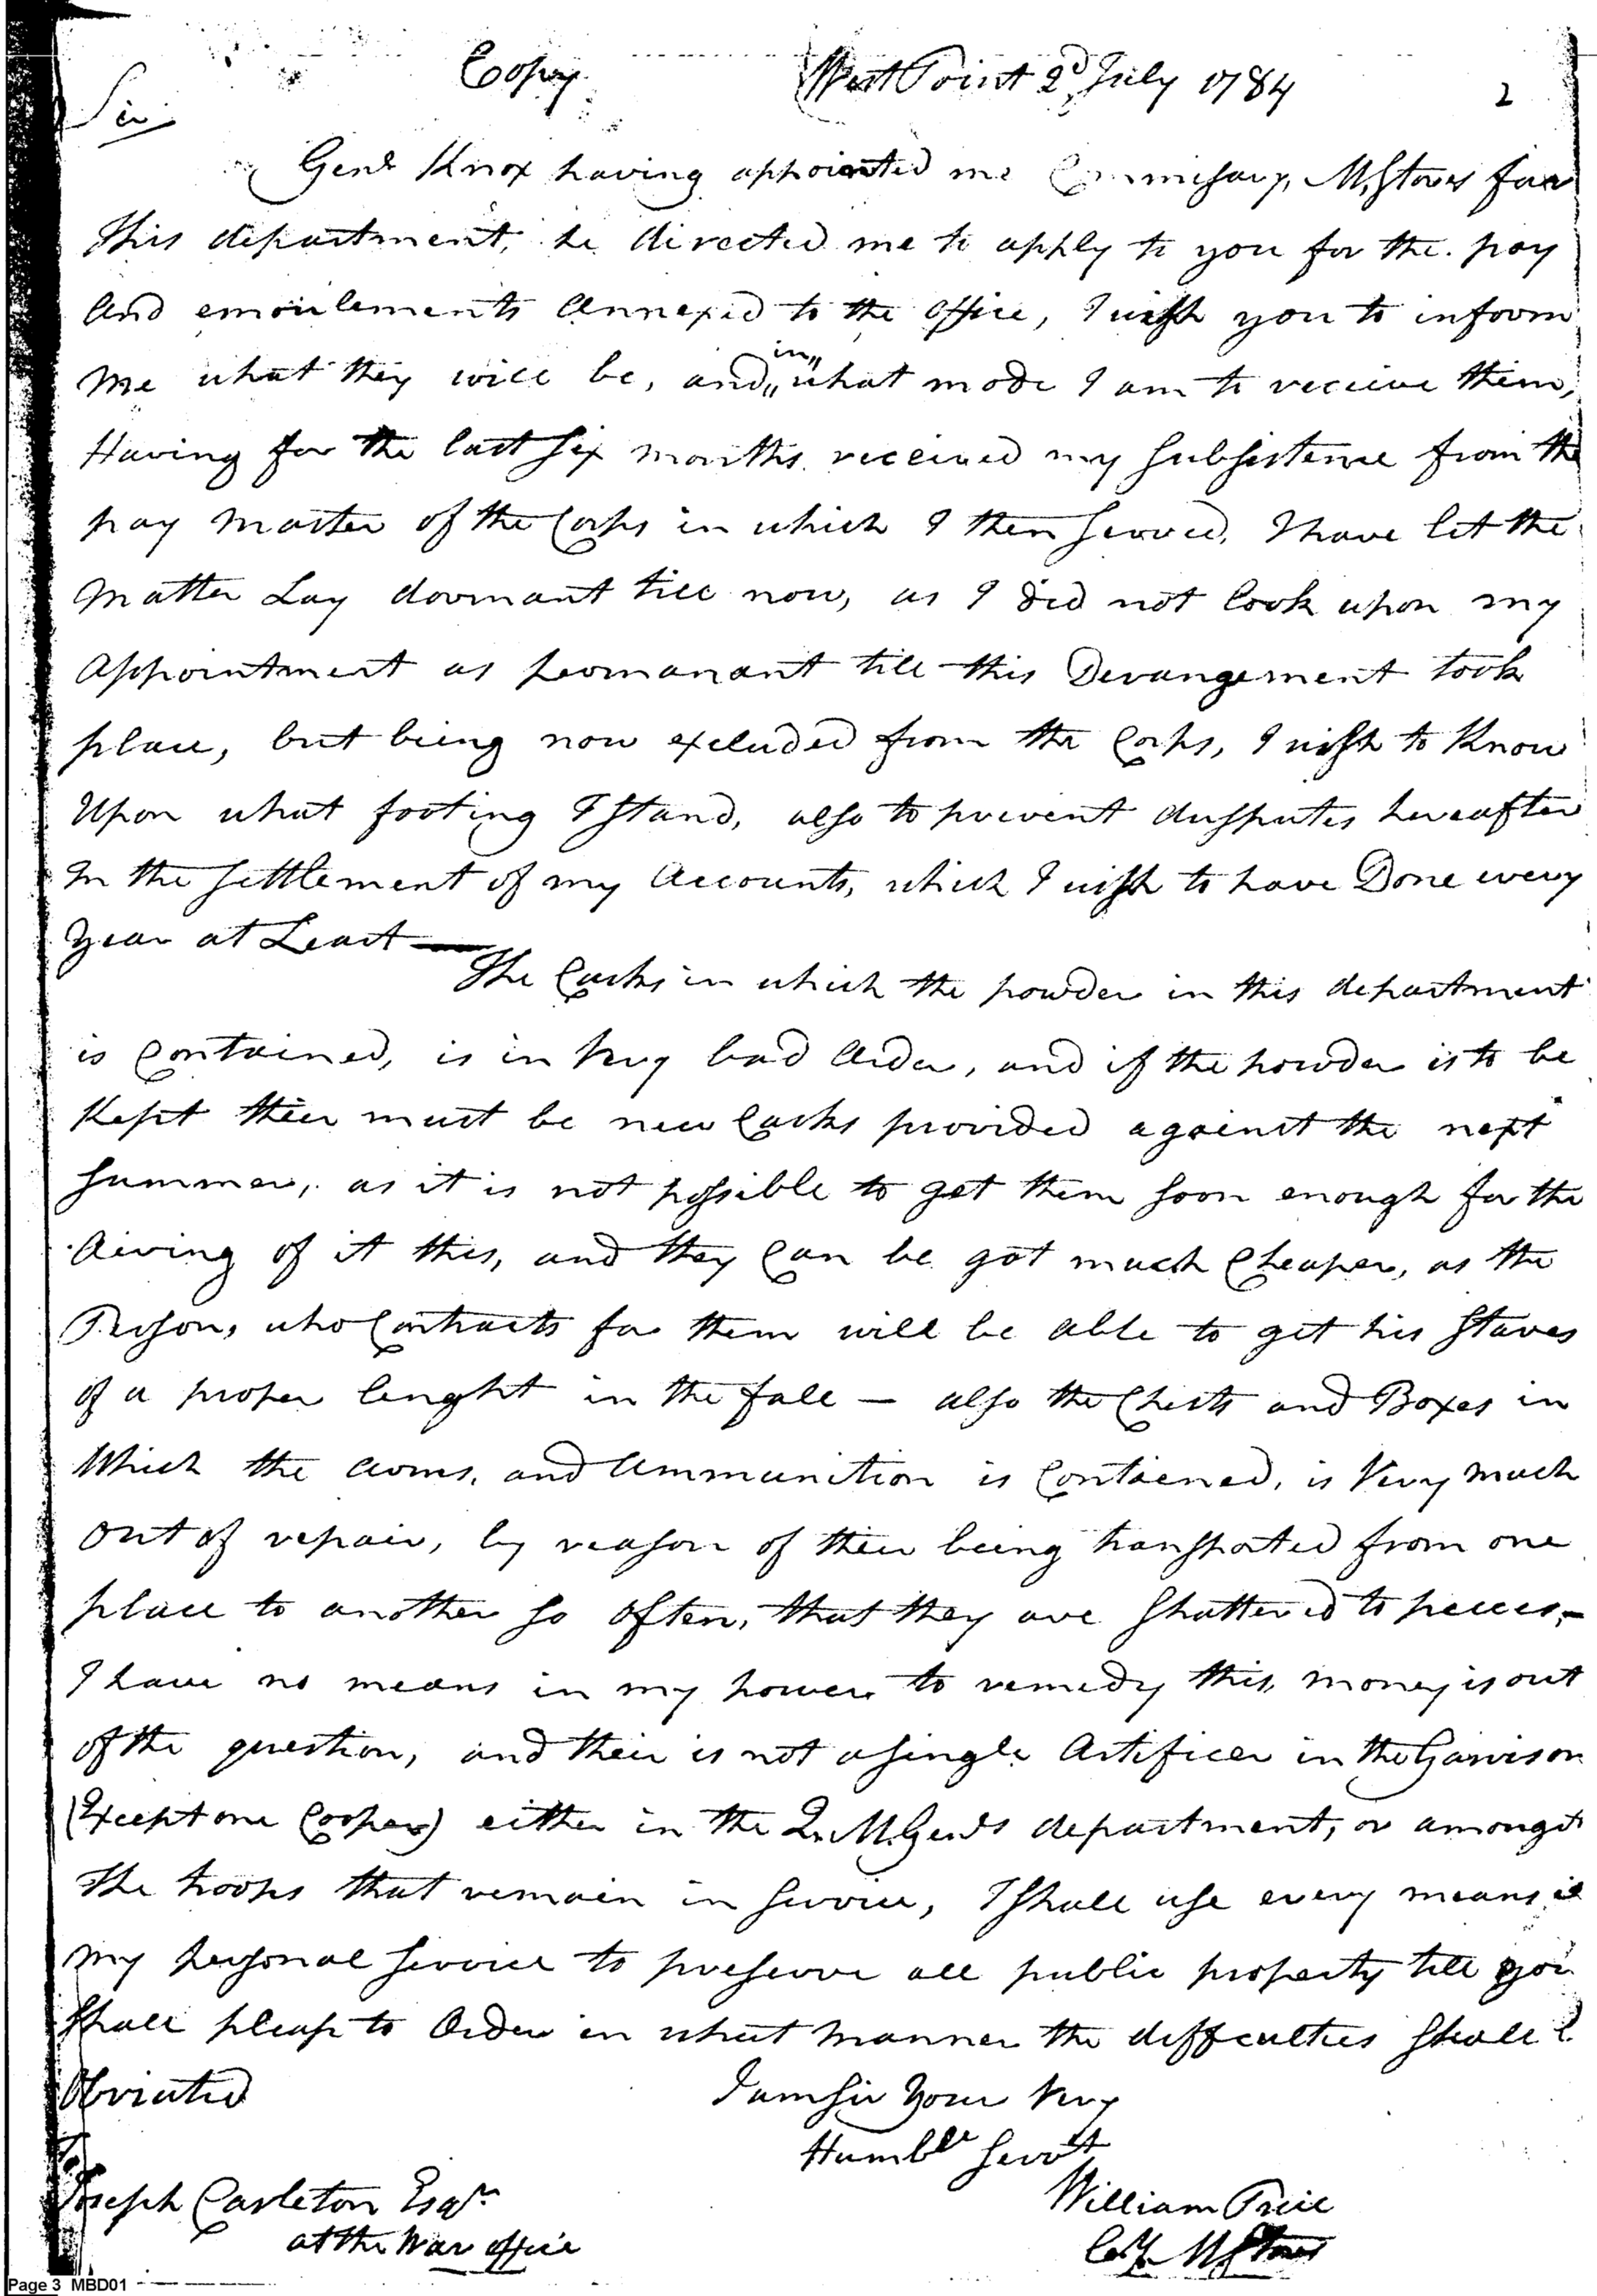 Copy West Point 2d July 1784 2
Sir
Genl Knox having appointed me Commissary, M, Stores for
this department, he directed me to apply to you for the pay
and emoulements annexed to the office, I wish you to inform
me what they will be, and in what mode I am to receive them,
Having for the last six months received my subsistence from the
pay master of the Corps in which I then served, I have let the
matter Lay dormant till now, as I did not look upon my
appointment as permanant till this Derangement took
place, but being now excluded from the Corps, I wish to Know
Upon what footing I stand, also to prevent dusputes hereafter
In the settlement of my Accounts, which I wish to have Done every
Year at Least —
The Casks in which the powder in this department
is Contained, is in very bad Order, and if the powder is to be
Kept their must be new Casks provided against the next
summer, as it is not possible to get them soon enough for the
Airing of it this, and they Can be got much Cheaper, as the
Person, who Contracts for them will be able to get his staves
of a proper lenght in the fall — also the Chests and Boxes in
Which the arms, and Ammunition is Contained, is Very much
out of repair, by reason of their being transported from one
place to another so often, that they are shattered to peeces,-
I have no means in my power to remedy this, money is out
of the question, and their is not a single Artificer in the Garrison
(Except one Cooper) either in the Qr. M. Genls department, or amongst
the troops that remain in service, I shall use every means in
my personal service to preserve all public property till you
shall please to Order in what manner the diffculties shall be
Obviated
I am Sir Your Very
Humble Servt
William Price
Joseph Carleton Esqr
at the War office
Cosy. M, Stores
Page 3 MBD01